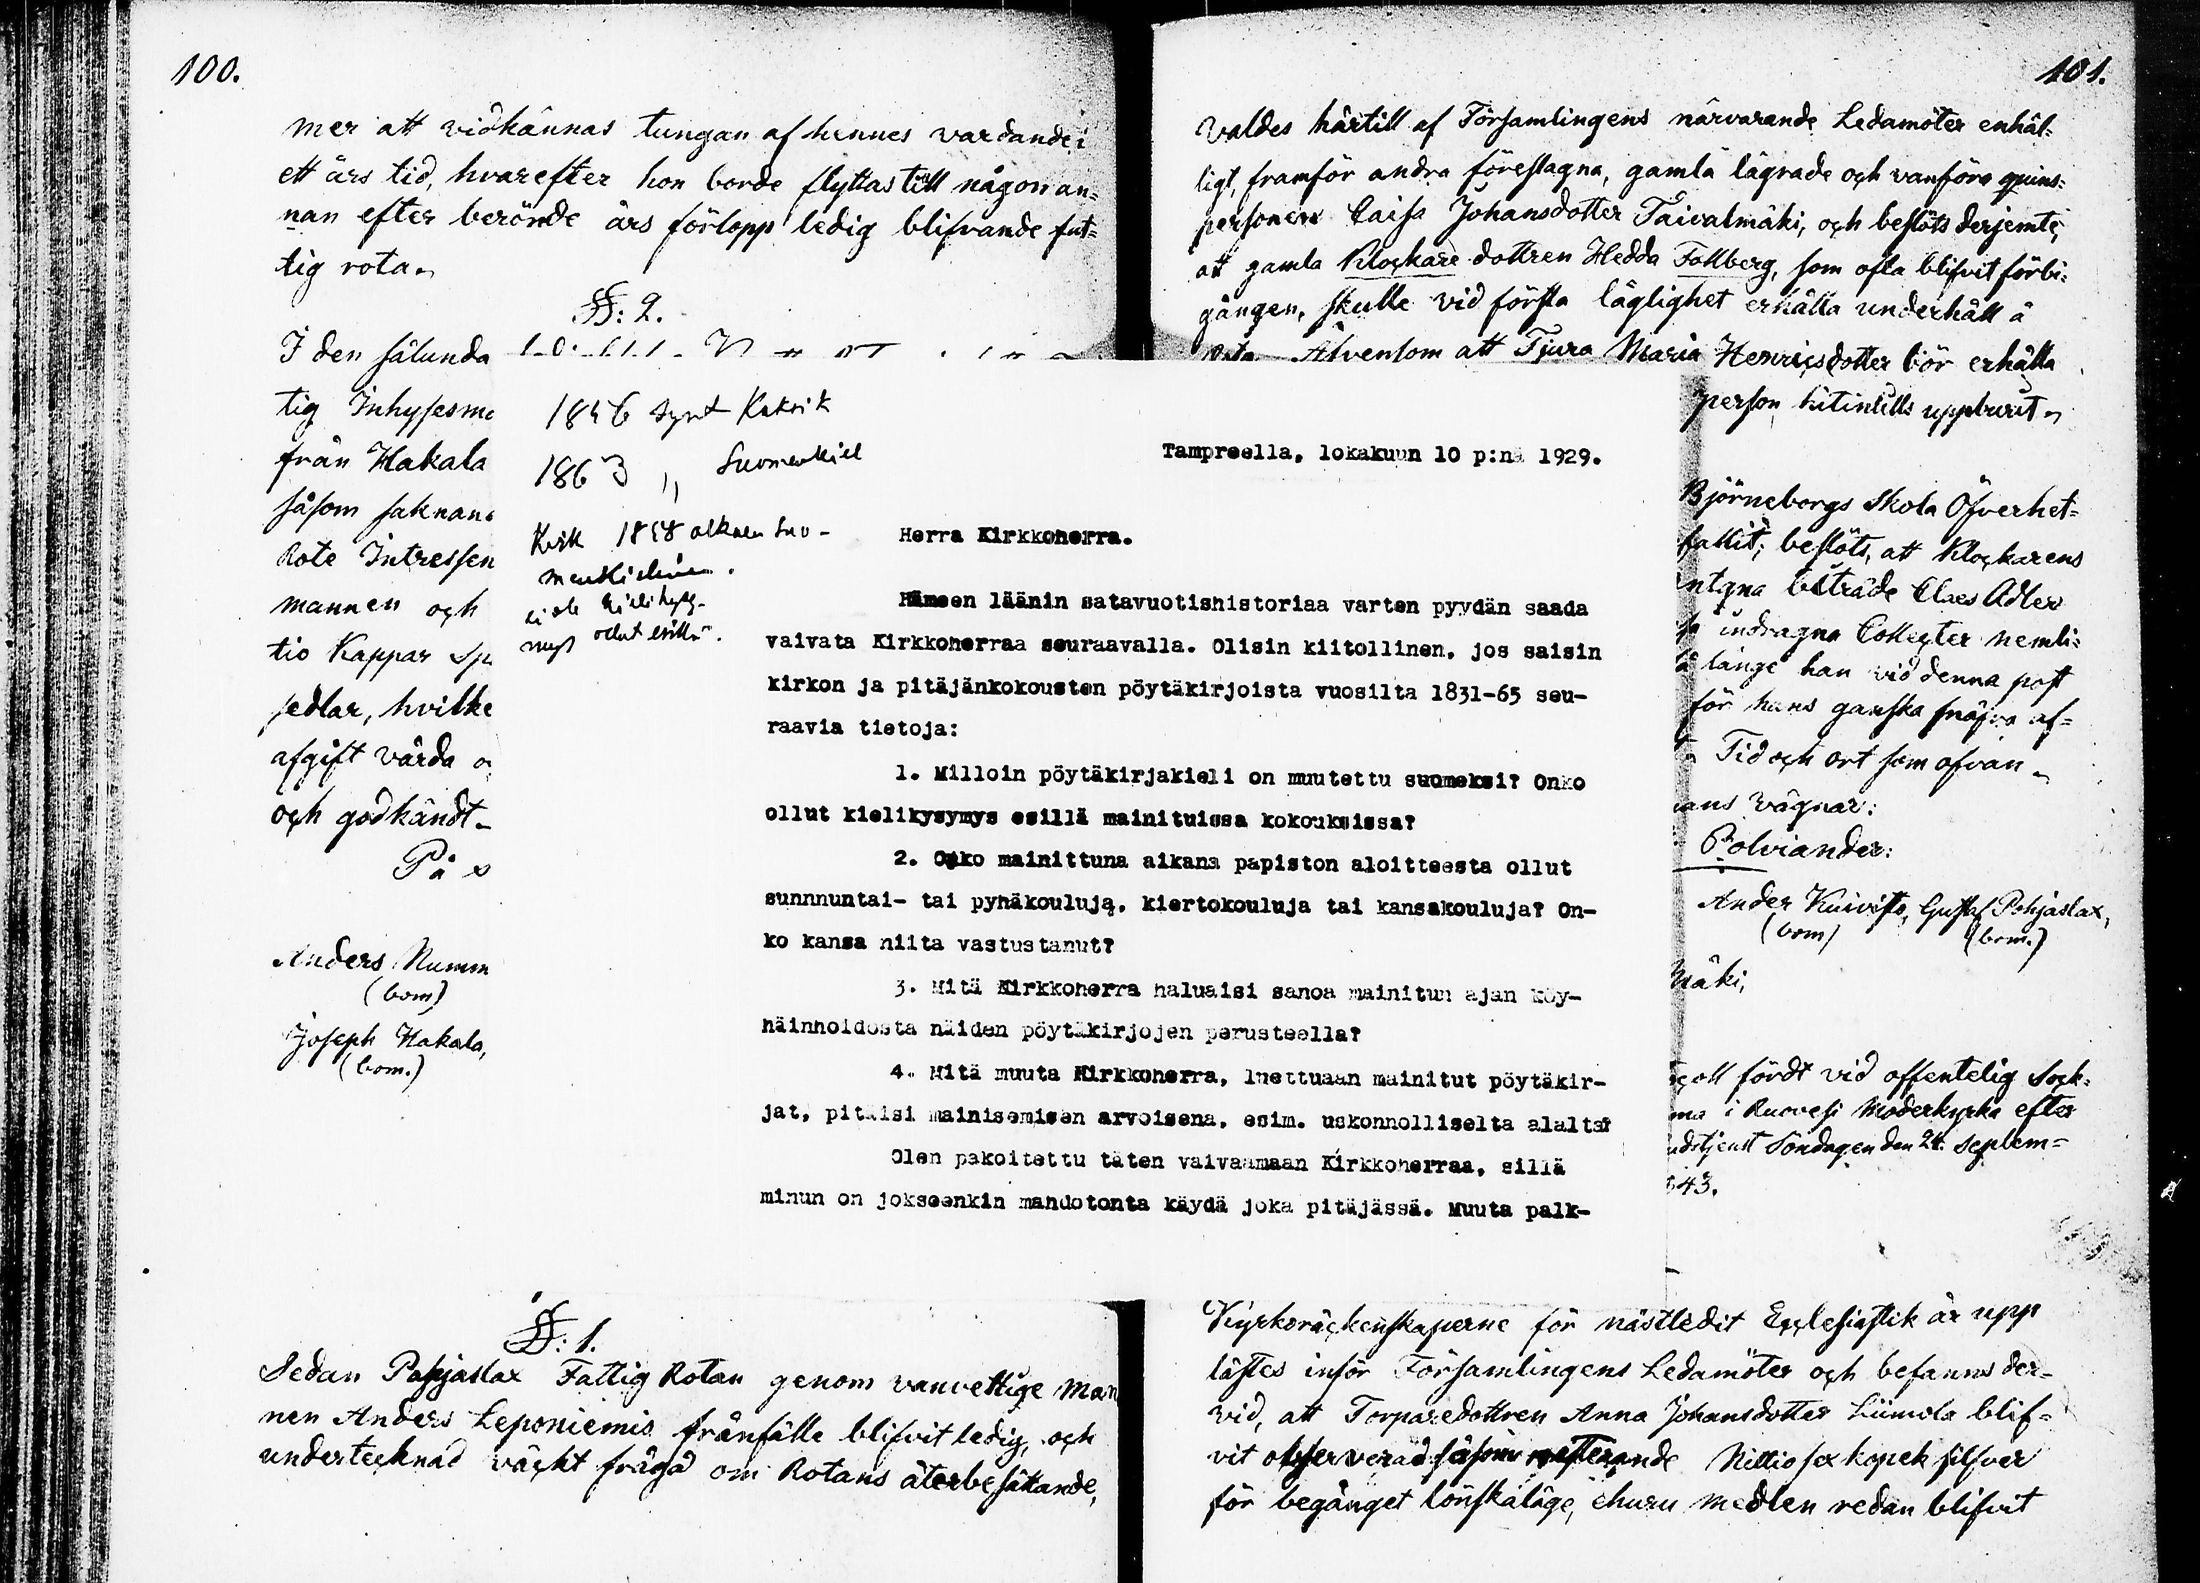 100.
mer att vidkännas tungan af hennes vårdande i
ett års tid, hvarefter hon borde flyttas till någon an=
nan efter berörde års förlopp ledig blifvande fat=
tig rota.
§: 2.
I den sålunda
tig Inhysesme
från Hakala
såsom saknan
Rote Intressen
mannen och
tio Kappar Sp
sedlar, hvilke
afgift vårda o
och godkändt.
På
Anders Numm
(bom)
Joseph Hakala,
(bom.)
§: 1.
Sedan Pohjaslax Fattig Rotan genom vanvettige Man
nen Anders Leponiemis frånfälle blifvit ledig, och
undertecknad väckt fråga om Rotans återbesättande,
1846
1863 " Suomenkiel
1858 alkaen Suo-
menkielinen.
ei ole kielikysy-
mys ollut esillä.
Tampreella, lokakuun 10 p:nä 1929.
Herra Kirkkoherra.
Hämeen läänin satavuotishistoriaa varten pyydän saada
vaivata Kirkkoherraa seuraavalla. Olisin kiitollinen, jos saisin
kirkon ja pitäjänkokousten pöytäkirjoista vuosilta 1831-65 seu-
raavia tietoja:
1. Milloin pöytäkirjakieli on muutettu suomeksi? Onko
ollut kielikysymys esillä mainituissa kokouksissa?
2. Onko mainittuna aikana papiston aloitteesta ollut
sunnnuntai- tai pyhäkouluja, kiertokouluja tai kansakouluja? On-
ko kansa niita vastustanut?
3. Mitä Kirkkoherra haluaisi sanoa mainitun ajan köy-
häinhoidosta näiden pöytäkirjojen perusteella?
4. Mitä muuta Kirkkoherra, luettuaan mainitut pöytäkir-
jat, pitäisi mainisemisen arvoisena, esim. uskonnolliselta alalta?
Olen pakoitettu täten vaivaamaan Kirkkoherraa, sillä
minun on jokseenkin mahdotonta käydä joka pitäjässä. Muuta palk-
101.
valdes härtill af Församlingens närvarande Ledamöter enhäl=
ligt, framför andra föreslagna, gamla lägrade och vanföra qvins=
personen Caisa Johansdotter Taivalmäki, och beslöts derjemte,
att gamla Klockare dottren Hedda Follberg, som ofta blifvit förbi=
gången, skulle vid första läglighet erhålla underhåll å
Rota Äfvensom att Tjura Maria Henricsdotter bör erhålla
person hitintills uppburit.
Björneborgs Skola Öfverhet=
fallit; beslöts, att Klockarens
biträde Claes Adler
indragna Collecter nemli=
länge han vid denna post
för hans ganska af=
Tid och ort som ofvan.
vägnar:
Polviander:
Ander Kuivisto, Gustaf Pohjaslax,
(bom) (bom.)
mäki,
coll fördt vid offentelig Sock=
ma i Ruovesi Moderkyrka efter
dstjenst Söndagen den 24. Septem=
843.
Kyrkoräckenskaperne för nästledit Ecclesiastik år upp
lästes inför Församlingens Ledamöter och befanns der=
vid, att Torparedottren Anna Johansdotter Liimola blif=
vit observerad såsom resterande Nittiosex kopek silfver
för begånget lönskaläge, ehuru medlen redan blifvit